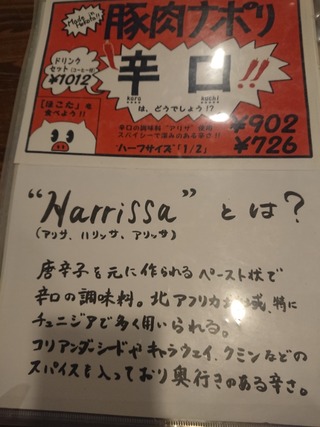 豚肉ナポリ
ドリンク
セット(コーヒー他)
¥1012
辛口!!
kara kuchi
は、どうでしょう!?
「ほこた」を
食べよう!!
辛口の調味料"アリサ"使用
スパイシーで深みのある辛さ!!
¥902
"ハーフサイズ"「1/2」 ¥726
"Harrissa" とは?
(アリサ、ハリッサ、アリッサ)
唐辛子を元に作られるペースト状で
辛口の調味料。北アフリカ地域、特に
チュニジアで多く用いられる。
コリアンダーシードやキャラウェイ、クミンなどの
スパイスも入っており奥行きのある辛さ。